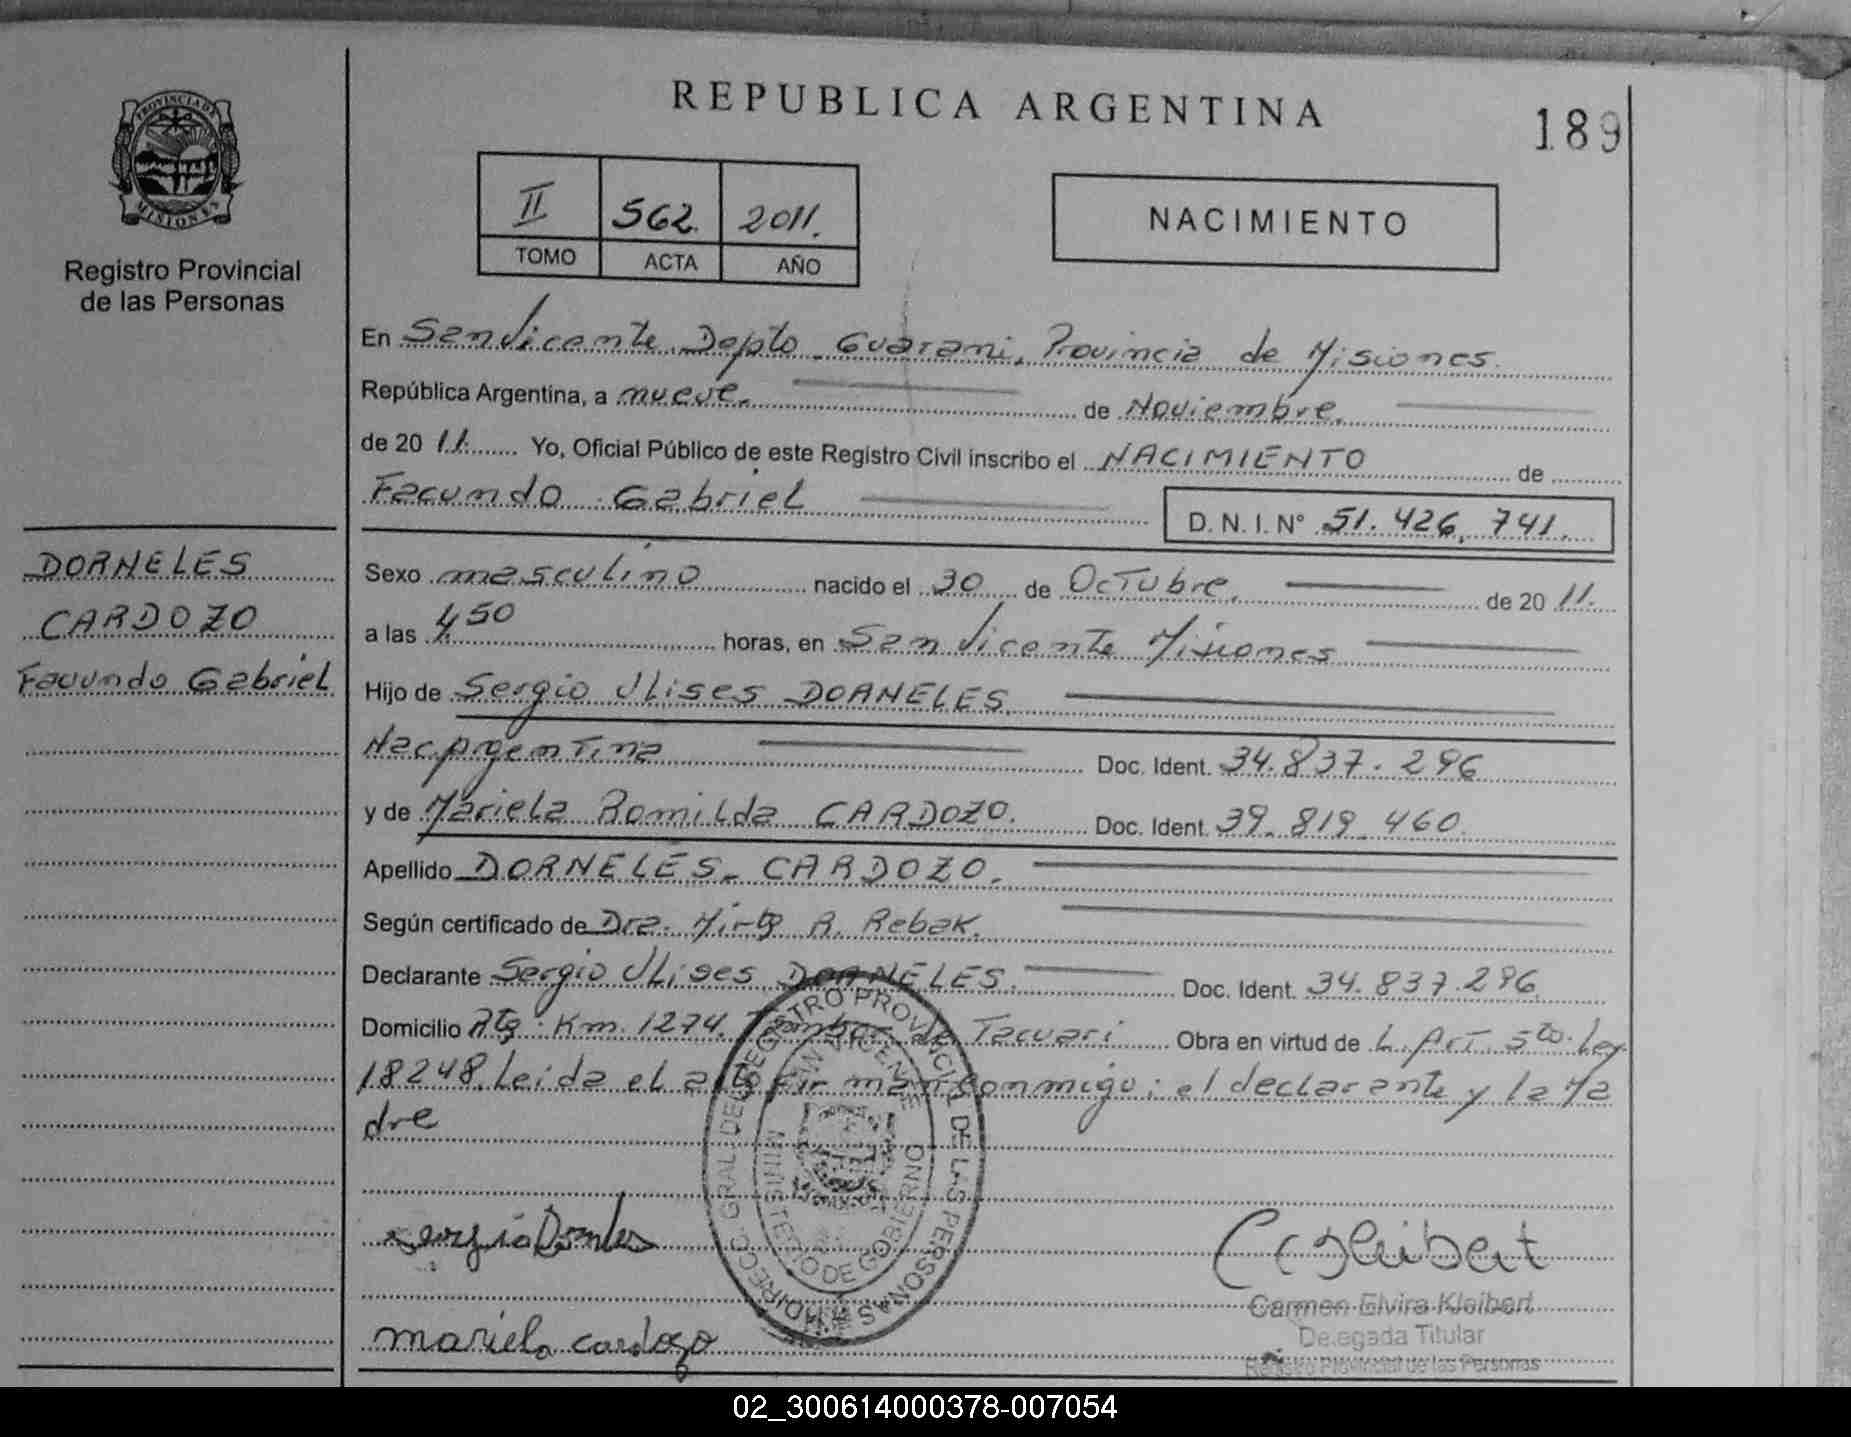 REPUBLICA ARGENTINA
189
PROVINCIA DE MISIONES
Registro Provincial
de las Personas
II 562. 2011.
TOMO ACTA AÑO
NACIMIENTO
En San Vicente. Depto. Guarani, Provincia de Misiones.
República Argentina, a nueve. de Noviembre.
de 20 11. Yo, Oficial Público de este Registro Civil inscribo el NACIMIENTO de
Facundo Gabriel
D. N. I. N° 51.426.741.
DORNELES
CARDOZO
Facundo Gabriel
Sexo masculino nacido el 30 de Octubre. de 20 11.
a las 4,50 horas, en San Vicente Misiones
Hijo de Sergio Ulises DORNELES.
Nac. Argentina Doc. Ident. 34.837.296
y de Mariela Romilda CARDOZO. Doc. Ident. 39.819.460
Apellido DORNELES-CARDOZO.
Según certificado de Dra. Mirta R. Rebak.
Declarante Sergio Ulises DORNELES. Doc. Ident. 34.837.296
Domicilio Rta: Km. 1274. Tambor de Tacuari Obra en virtud de L. Art. 5to. Ley
18248. Leida el acta firman conmigo: el declarante y la Ma
dre
DIRECC. GRAL. DEL REGISTRO PROVINCIAL DE LAS PERSONAS
SAN VICENTE
MINISTERIO DE GOBIERNO
Sergio Dorneles
CEKleibert
Carmen Elvira Kleibert
Delegada Titular
Registro Provincial de las Personas
mariela cardozo
02_300614000378-007054